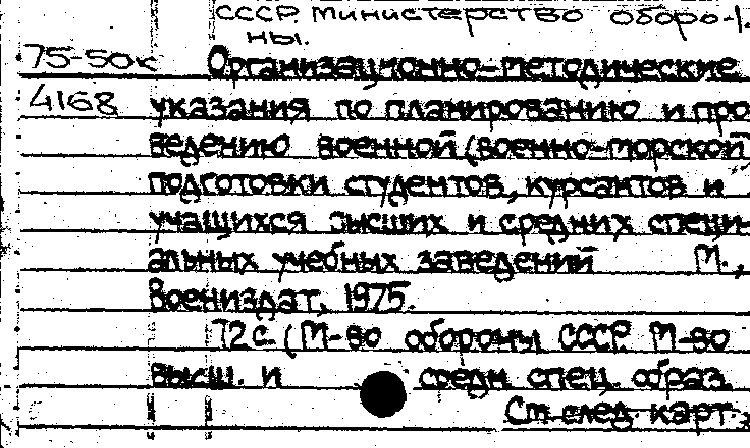 СССР. Министерство оборо-
ны.
75-50к Организационно-методические
4168 указания по планированию и про
ведению военной (военно-морской
подготовки студентов, курсантов и
учащихся высших и средних специ-
альных учебных заведений М.,
Воениздат, 1975.
72 с. (М-во обороны СССР. М-во
высш. и средн. спец. образ.
См след карт.